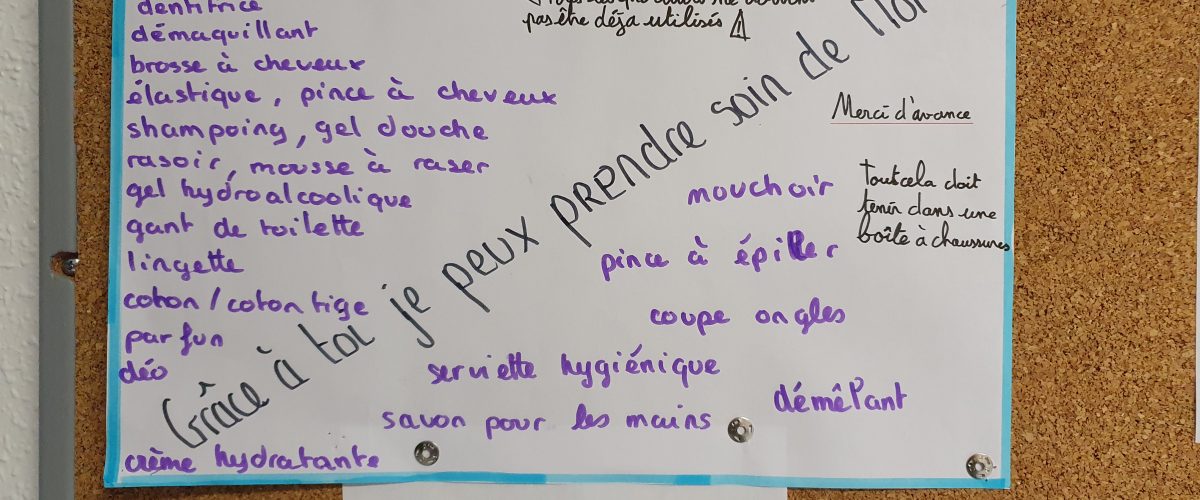 dentifrice
démaquillant
brosse à cheveux
élastique, pince à cheveux
shampoing, gel douche
rasoir, mousse à raser
gel hydroalcoolique
gant de toilette
lingette
coton / coton tige
parfun
déo
crème hydratante
pas être déja utilisés ⚠
Grâce à toi je peux prendre soin de
Merci d'avance
Tout cela doit
tenir dans une
boîte à chaussures
mouchoir
pince à épiller
coupe ongles
serviette hygiénique
démêlant
savon pour les mains